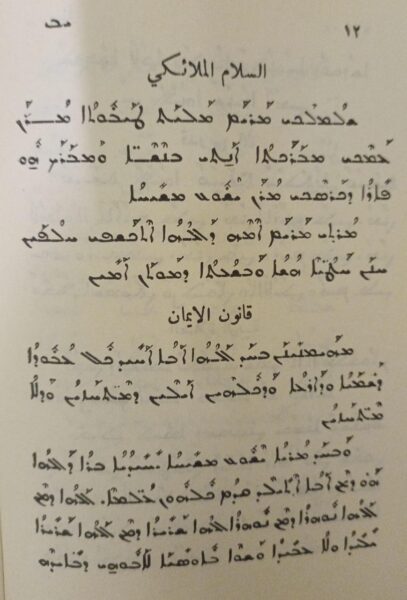 ܝܒ ١٢
السلام الملائكي
ܫܠܡ ܠܟܝ ܡܪܝܡ ܡܠܝܬ ܛܝܒܘܬܐ ܡܪܢ
ܥܡܟܝ ܡܒܪܟܬܐ ܐܢܬܝ ܒܢܫ̈ܐ ܘܡܒܪܟ ܗܘ
ܦܐܪܐ ܕܒܟܪܣܟܝ ܡܪܢ ܝܫܘܥ ܡܫܝܚܐ
ܡܪܬܝ ܡܪܝܡ ܐܡܗ ܕܐܠܗܐ ܐܬܟܫܦܝ ܚܠܦܝܢ
ܚܢܢ ܚܛܝ̈ܐ ܗܫܐ ܘܒܫܥܬܐ ܕܡܘܬܢ ܐܡܝܢ
قانون الايمان
ܡܗܝܡܢܝܢܢ ܒܚܕ ܐܠܗܐ ܐܒܐ ܐܚܝܕ ܟܠ ܥܒܘܕܐ
ܕܫܡܝܐ ܘܕܐܪܥܐ ܘܕܟܠܗܝܢ ܐܝܠܝܢ ܕܡܬ̈ܚܙܝܢ ܘܕܠܐ
ܡܬ̈ܚܙܝܢ
ܘܒܚܕ ܡܪܝܐ ܝܫܘܥ ܡܫܝܚܐ ܝܚܝܕܝܐ ܒܪܐ ܕܐܠܗܐ
ܗܘ ܕܡܢ ܐܒܐ ܐܬܝܠܕ ܩܕܡ ܟܠܗܘܢ ܥܠܡ̈ܐ. ܐܠܗܐ ܕܡܢ
ܐܠܗܐ ܢܘܗܪܐ ܕܡܢ ܢܘܗܪܐ ܐܠܗܐ ܫܪܝܪܐ ܕܡܢ ܐܠܗܐ ܫܪܝܪܐ
ܝܠܝܕܐ ܘܠܐ ܥܒܝܕܐ ܘܫܘܐ ܒܐܘܣܝܐ ܠܐܒܘܗܝ ܕܒܐܝܕܗ